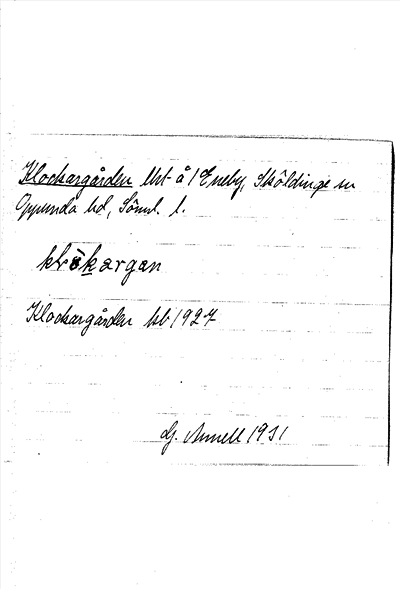 Klockargården lht å 1 Eneby, Sköldinge sn
Oppunda hd, Söml. l.
Klockargården kb 1927
G. Annell 1931